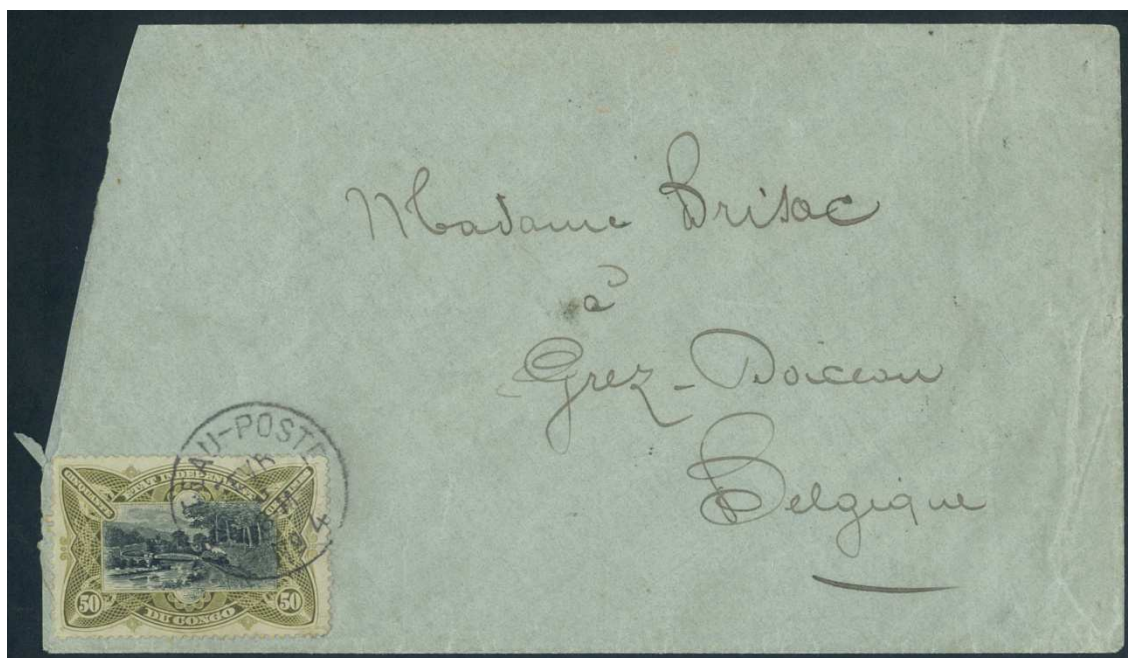 Madame Brisac
à
Grez-Doiceau
Belgique
AU-POSTE
ETAT INDEPENDANT
50 DU CONGO 50